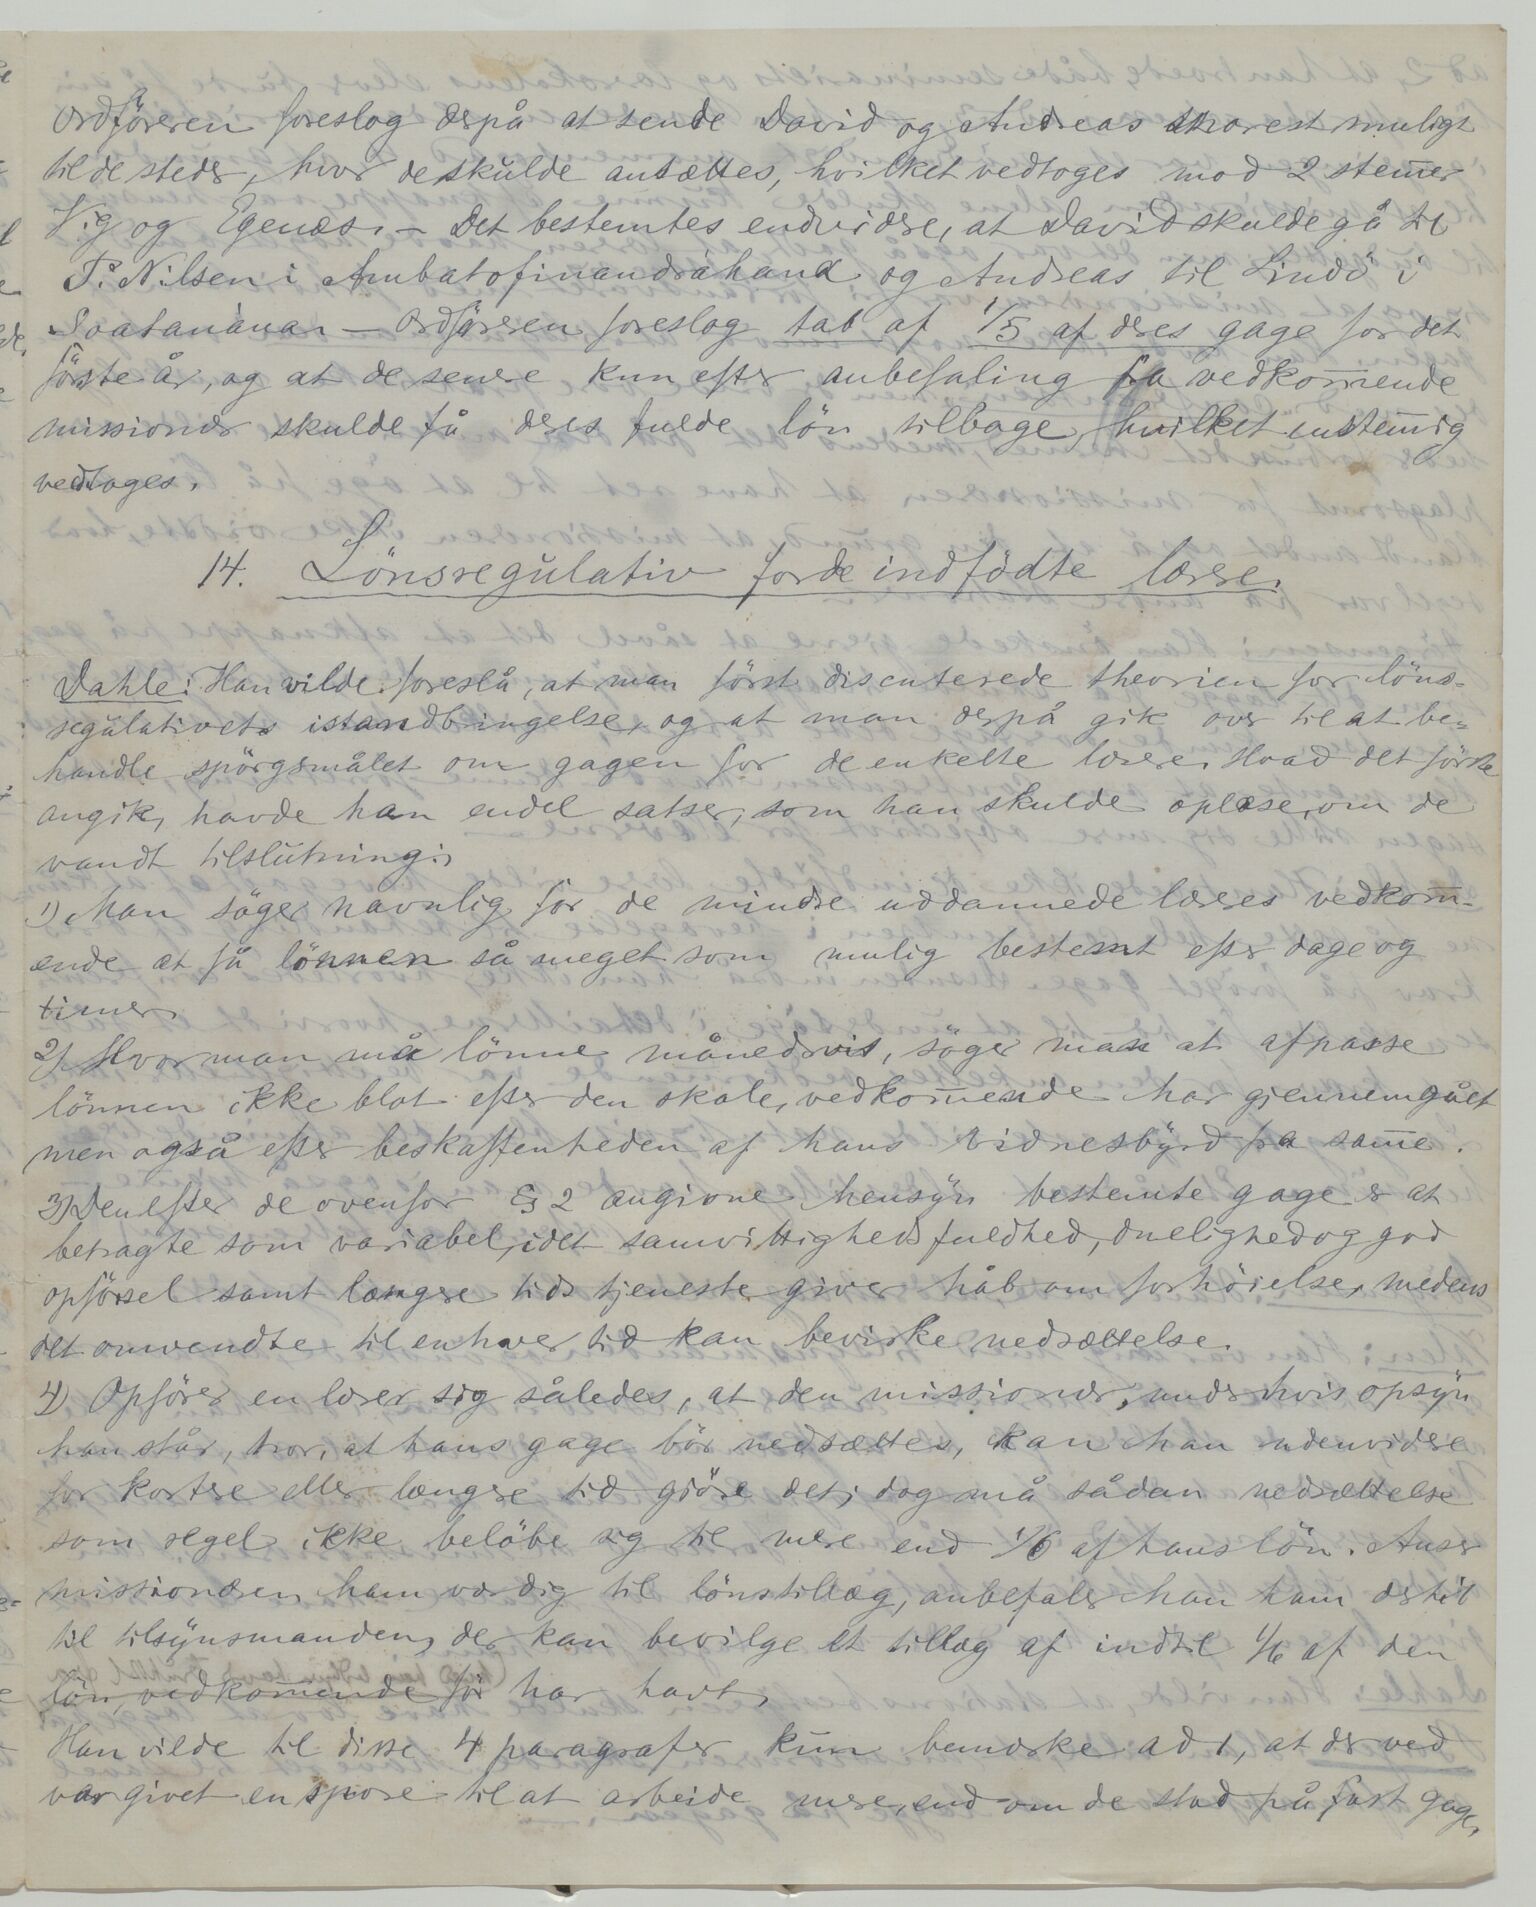 Ordföreren foreslog derpå at sende David og Andreas snarest muligt
til de steder, hvor de skulde ansættes, hvilket vedtoges mod 2 stem̄er
Vig og Egenæs. – Det bestemtes endvidere, at David skulde gå til
P. Nilsen i Ambatofinandrahana og Andreas til Lindö i
Soatanana. – Ordföreren foreslog tab af 1/5 af deres gage for det
förste år, og at de senere kun efter anbefaling fra vedkom̄ende
missionær skulde få deres fulde lön tilbage, hvilket enstem̄ig
vedtoges.
14. Lönsregulativ for de indfödte lærere.
Dahle: Han vilde foreslå, at man först discuterede theorien for löns-
regulativets istandbringelse, og at man derpå gik over til at be-
handle spörgsmålet om gagen for de enkelte lærere. Hvad det förste
angik, havde han endel satser, som han skulde oplæse, om de
vandt tilslutning:
1) Man söger navnlig for de mindre uddannede læreres vedkom̄-
ende at få lönnen så meget som mulig bestemt efter dage og
timer.
2) Hvor man må lönne månedsvis, söger man at afpasse
lönnen ikke blot efter den skole, vedkom̄ende har gjennemgået
men også efter beskaffenheden af hans vidnesbyrd fra sam̄e.
3) Den efter de ovenfor § 2 angivne hensyn bestemte gage er at
betragte som variabel, idet samvittighedsfuldhed, duelighed og god
opförsel samt længere tids tjeneste giver håb om forhöielse, medens
det omvendte til enhver tid kan bevirke nedsættelse.
4) Opförer en lærer sig således, at den missionær, under hvis opsyn
han står, tror, at hans gage bör nedsættes, kan han uden videre
for kortere eller længere tid gjöre det; dog må sådan nedsættelse
som regel ikke belöbe sig til mere end 1/6 af hans lön. Anser
missionæren ham værdig til lönstillæg, anbefaler han ham dertil
til tilsynsmanden, der kan bevilge et tillæg af indtil 1/6 af den
lön, vedkom̄ende för har havt.
Han vilde til disse 4 paragrafer kun bemærke ad 1, at derved
var givet en spore til at arbeide mere, end om de stod på fast gage,